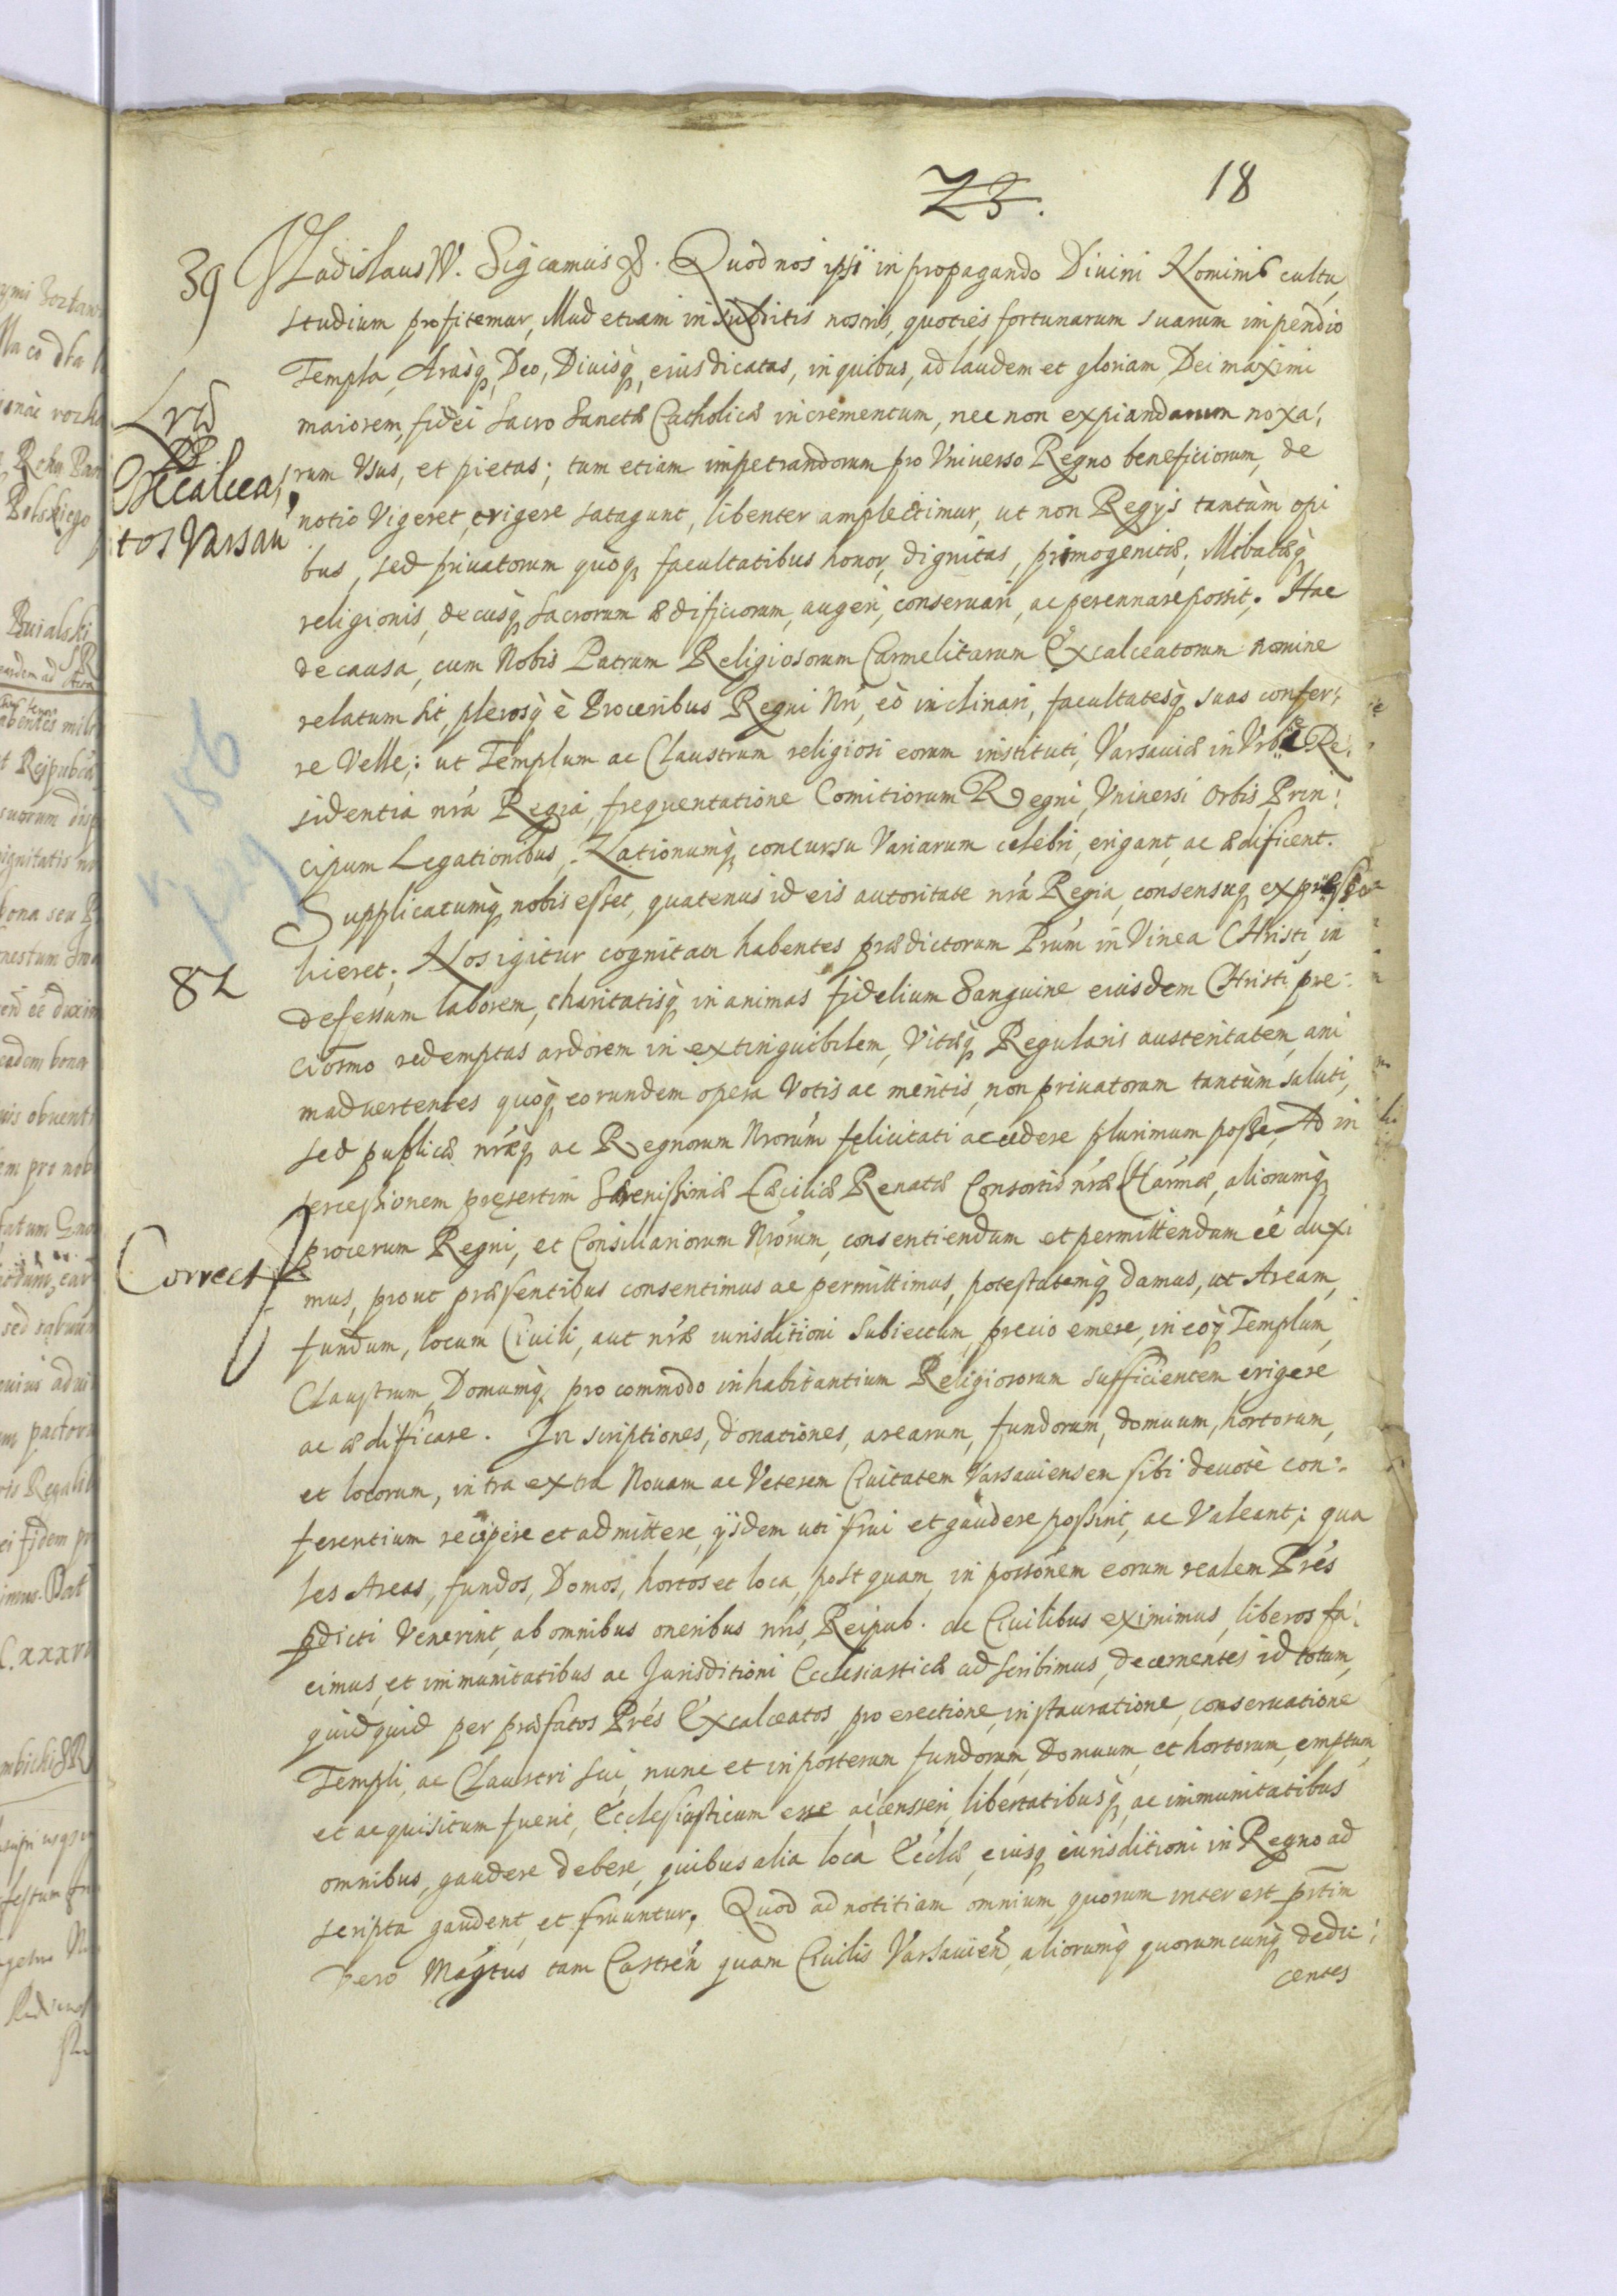 23.
18
39
Vladislaus IV. Sigcamus &. Quod nos ipsi in propagando Divini Nominis cultu,
studium profitemur, illud etiam in subditis nostris, quoties fortunarum suarum impendio
Templa, Arasq, Deo, Divisq, eius dicatas, in quibus, ad laudem et gloriam Dei maximi
maiorem, fidei Sacro Sanctæ Catholicæ incrementum, nec non expiandarum noxa:
Excalcea:
tos Varsav
rum Usus, et pietas; tum etiam impetrandorum pro Universo Regno beneficiorum, de
notio Vigeret, erigere satagunt, libenter amplectimur, ut non Regys tantùm opi
bus, sed privatorum quòq facultatibus honor, dignitas, primogenitæ,
religionis, decusq sacrorum ædificiorum, augeri, conservari, ac perennare possit. Hac
de causa, cum Nobis Patrum Religiosorum Carmelitarum Excalceatorum nomine
relatum sit, plerosq è Proceribus Regni Nri, eò inclinari, facultatesq suas confer:
re Velle; ut Templum ac Claustrum religiosi eorum instituti, Varsaviæ in Urbe Re:
sidentia nrá Regiá, frequentatione Comitiorum Regni, Universi Orbis Prin:
cipum Legationibus, Nationumq concursu Variarum celebri, erigant, ac ædificent.
Supplicatumq nobis esset, quatenus id eis autoritate nrá Regia, consensuq expresso
82
lieret; Nos igitur cognitam habentes prædictorum Prúm in Vinea Christi, in
defessum laborem, charitatisq in animas fidelium Sanguine eiusdem Christi pre:
ciosmo redemptas ardorem in extinguibilem, Vitæq Regularis austeritatem, ani
madvertentes quòq eorundem opera Votis ac meritis, non privatorum tantùm saluti,
sed publicæ nræq ac Regnorum Nrorúm felicitati accedere plurimum posse, Ad in
tercessionem præsertim Serenissimæ Cæciliæ Renatæ Consortis nræ Charmæ, aliorumq
procerum Regni, et Consiliariorum Nrorum, consentiendum et permittendum eé duxi
Correct
mus, prout præsentibus consentimus ac permittimus, potestatemq damus, ut Aream,
fundum, locum Civili, aut nræ iurisditioni Subiectum, precio emere, in eoq Templum,
Claustrum, Domumq pro commodo inhabitantium Religiosorum sufficientem erigere
ac ædificare. In scriptiones, donationes, arearum, fundorum, domuum, hortorum,
et locorum, intra extra Novam ac Veterem Civitatem Varsaviensem sibi devotè con:
ferentium recipere et admittere, ysdem uti frui et gaudere possint, ac Valeant; qua
les Areas, fundos, Domos, hortos et loca, post quam in possónem eorum realem Prés
pdicti Venerint, ab omnibus oneribus nris, Reipub. ac Civilibus eximimus, liberos fa:
cimus, et immunitatibus ac Jurisditioni Ecclesiasticæ adscribimus, decernentes id totum,
quidquid per præfatos Prés Excalceatos, pro erectione, instauratione, conservatione
Templi, ac Claustri sui, nunc et in posterum fundorum, Domuum, et hortorum, emptum,
et acquisitum fuerit, Ecclesiasticum esse accenseri, libertatibusq ac immunitatibus
omnibus, gaudere debere, quibus alia loca Ecclæ, eiusq iurisditioni in Regno ad
scripta gaudent, et fruuntur. Quod ad notitiam omnium, quorum interest prtim
vero Magtus tam Castren quam Civilis Varsavien, aliorumq quorumcunq dedu:
centes